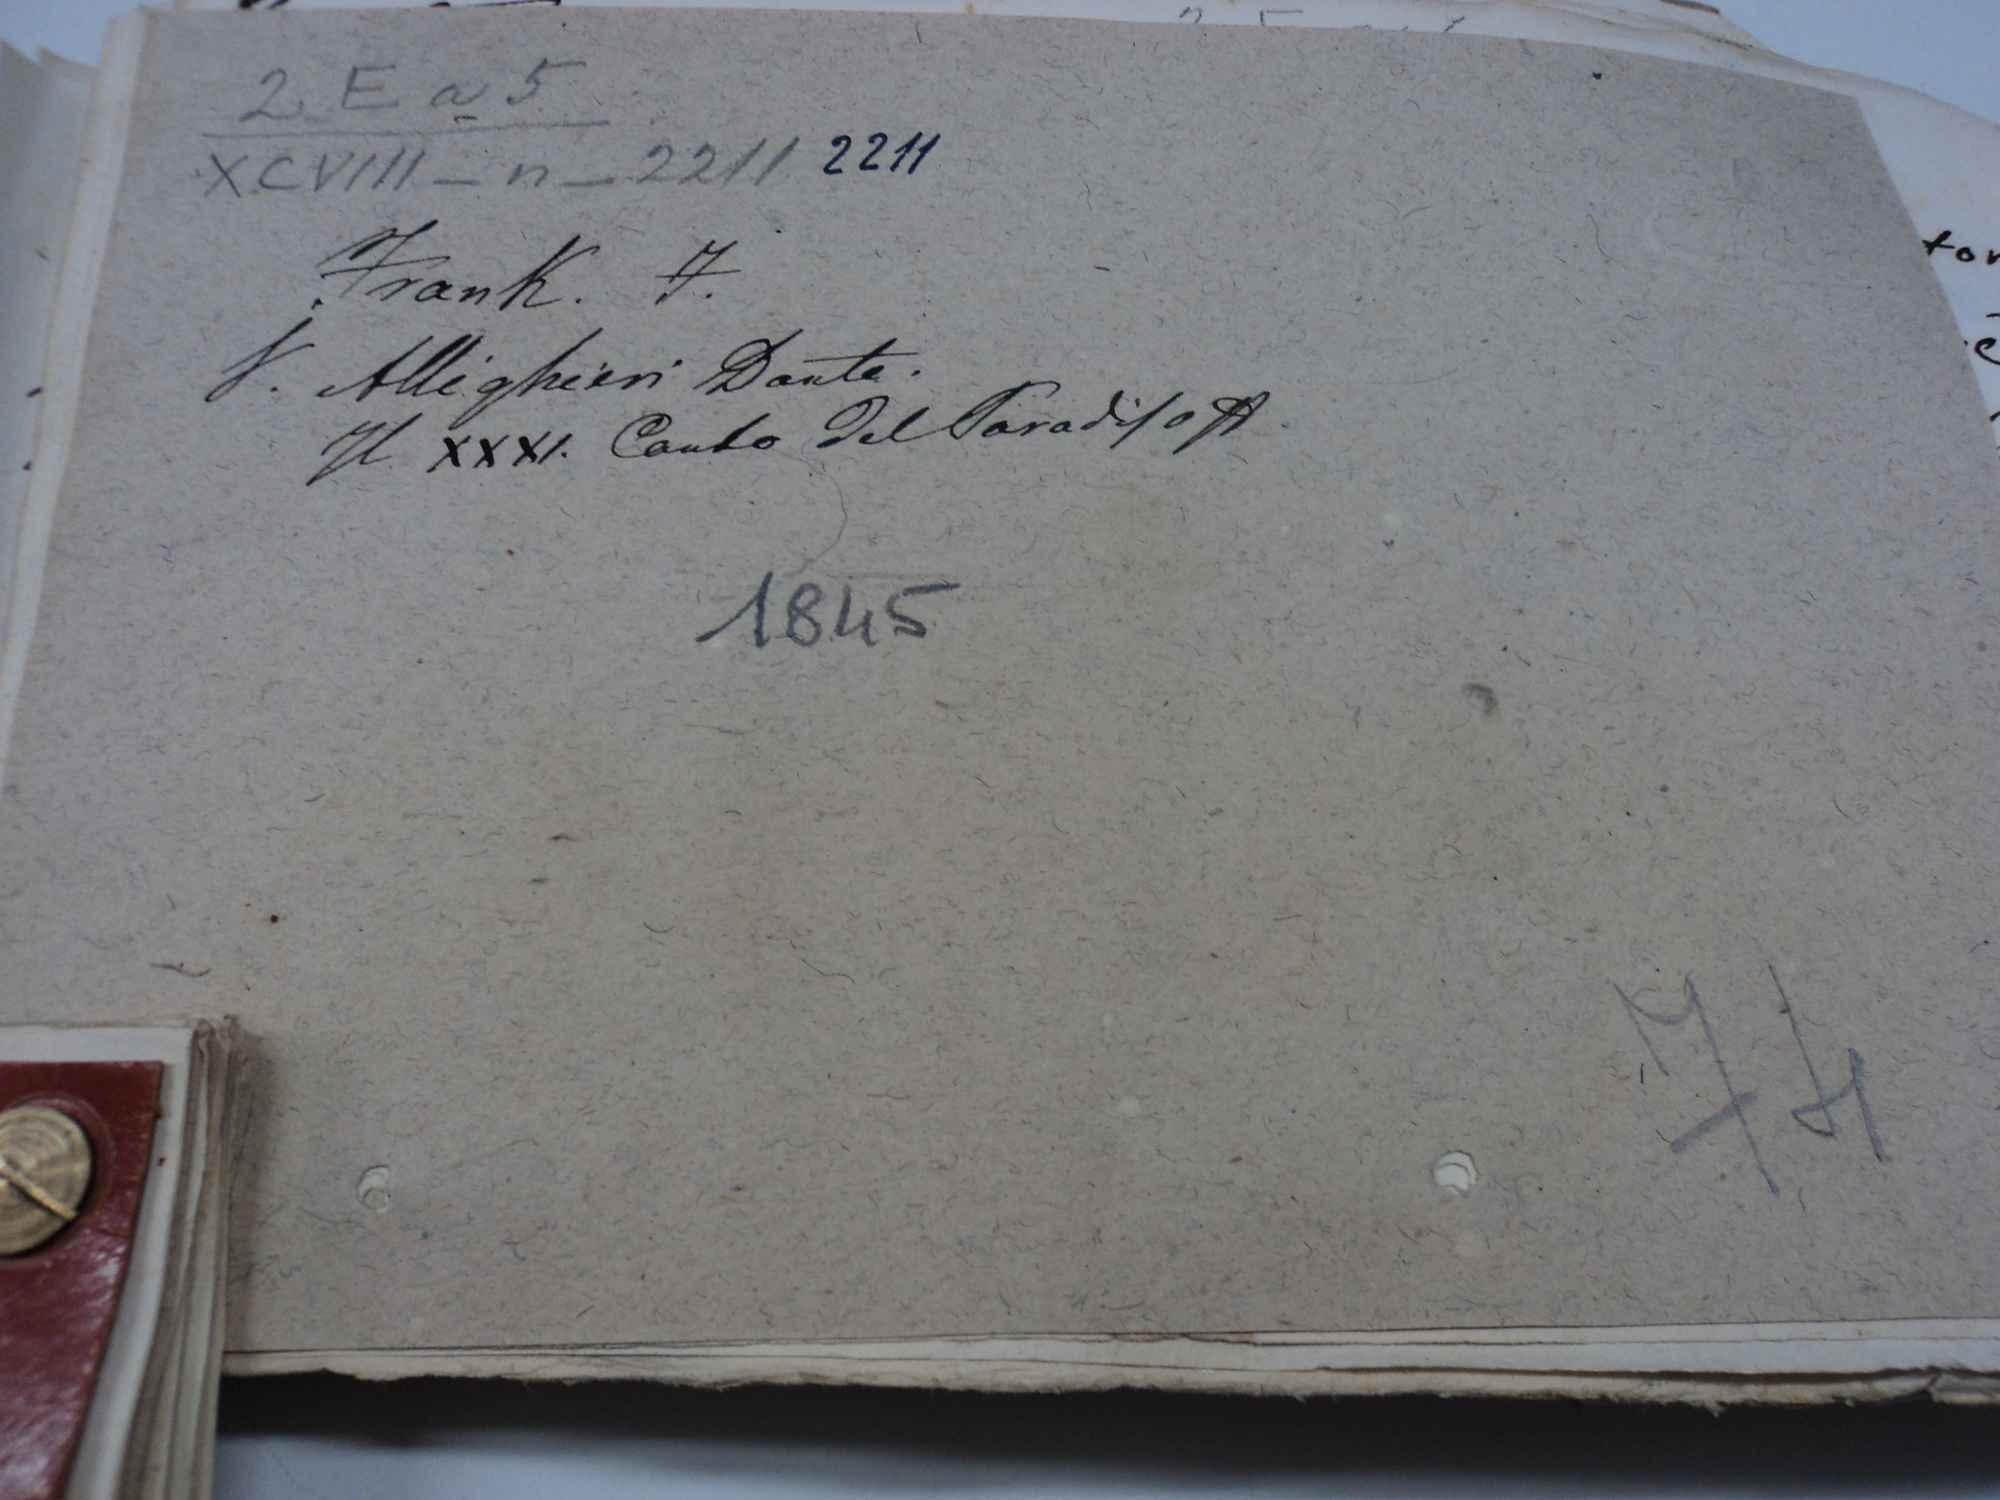 2 E a 5
XCVIII - n - 2211 2211
Frank. F.
V. Allighieri Dante.
Il XXXI. Canto del Paradiso
1845
74